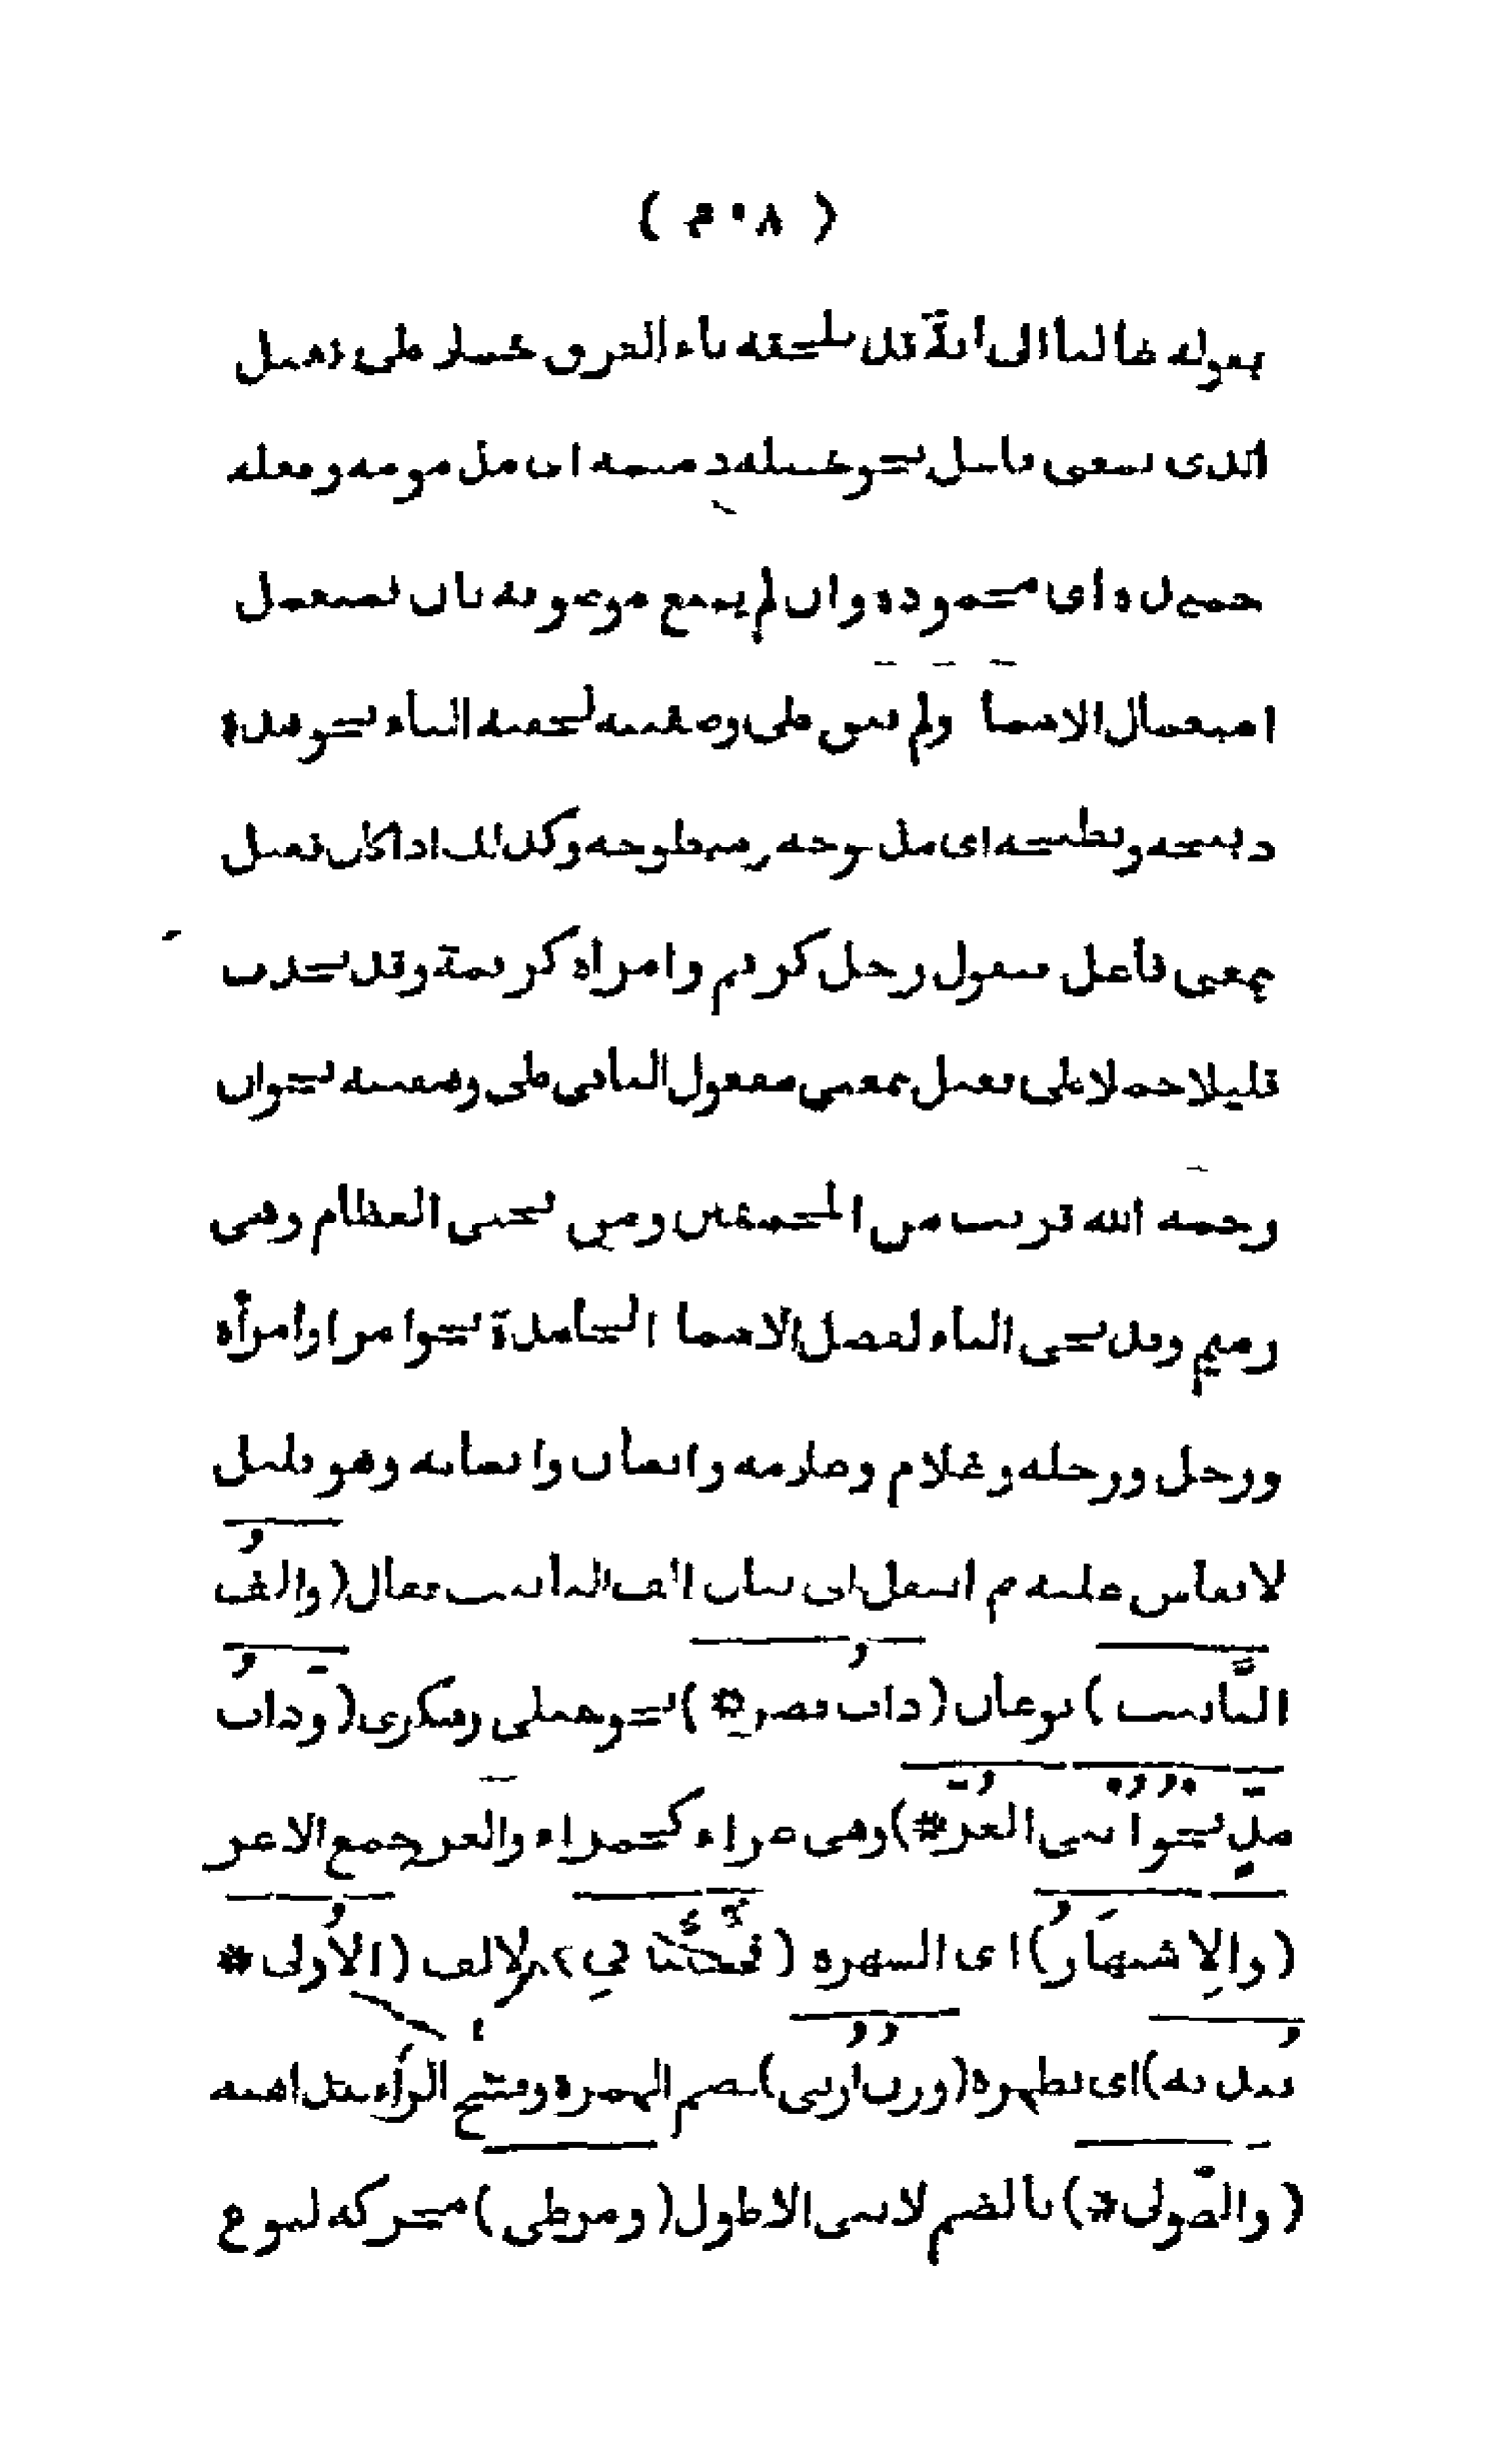 ( ٤٠٨ )
بقوله غالبا الى انه قد تلحقه تاء الفرق حملا على فعيل
الذى بمعنى فاعل نحو خصلة ذميمة اى مذمومة وفعلة
حميدة اى محمودة وان لم يتبع موصوفه بان استعمل
استعمال الاسماء ولم يبق على وصفيته لحقته التاء نحو هذه
ذبيحة ونطيحة اى مذبوحة ومنطوحة وكذلك اذا كان فعيل
بمعنى فاعل فتقول رجل كريم وامراة كريمة وقد تحذف
قليلا حملا على فعيل بمعنى مفعول الباقى على وصفيته نحو ان
رحمة الله قريب من المحسنين ومن يحيى العظام وهى
رميم وقد تجىء التاء لفصل الاسماء الجامدة نحو امرا وامرأة
ورجل ورجلة وغلام وغلامة وانسان وانسانة وهو قليل
لا يقاس عليه ثم انتقل الى بيان الف التأنيث فقال (والف
التأنيث) نوعان (ذات قصر *) نحو حبلى وسكرى (وذات
مد نحو انثى الغر *) وهى غراء كحمراء والغر جمع الاغر
(والاشتهار) اى الشهرة (فى مبانى) الالف (الاولى *
يبديه) اى يظهره (وزن اربى) بضم الهمزة وفتح الراء
(والطولى *) بالضم لانثى الاطول (ومرطى) محركة لنوع